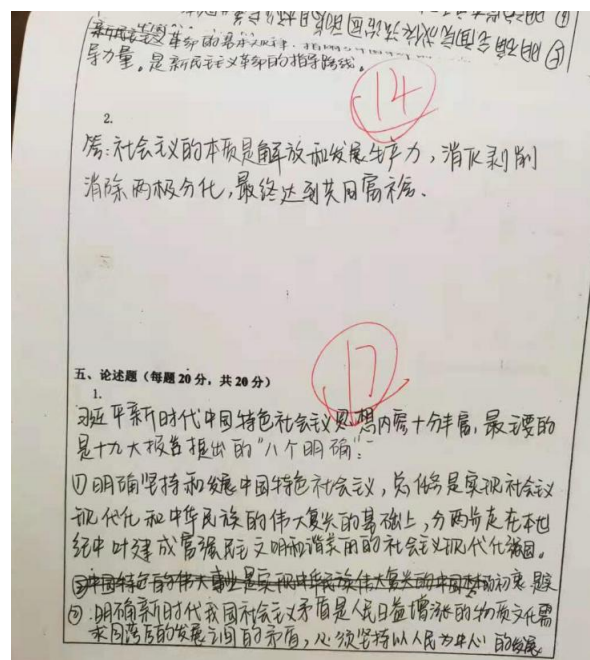 ④明确全面
⑤明确全面依法治国的目标
新民主主义革命的基本纪律
导力量。是新民主主义革命的指导路线。
14
2.
答:社会主义的本质是解放和发展生产力,消灭剥削
消除两极分化,最终达到共同富裕.
17
五、论述题(每题20分,共20分)
1.
习近平新时代中国特色社会主义思想内容十分丰富,最主要的
是十九大报告提出的"八个明确":
①明确坚持和发展中国特色社会主义,总任务是实现社会主义
现代化和中华民族的伟大复兴的基础上,分两步走在本世
纪中叶建成富强民主文明和谐美丽的社会主义现代化强国。
③中国特色的伟大事业是实现中华民族伟大复兴的中国梦初衷
②:明确新时代我国社会主义矛盾是人民日益增涨的物质文化需
求同落后的发展之间的矛盾,必须坚持以人民为中心的发展